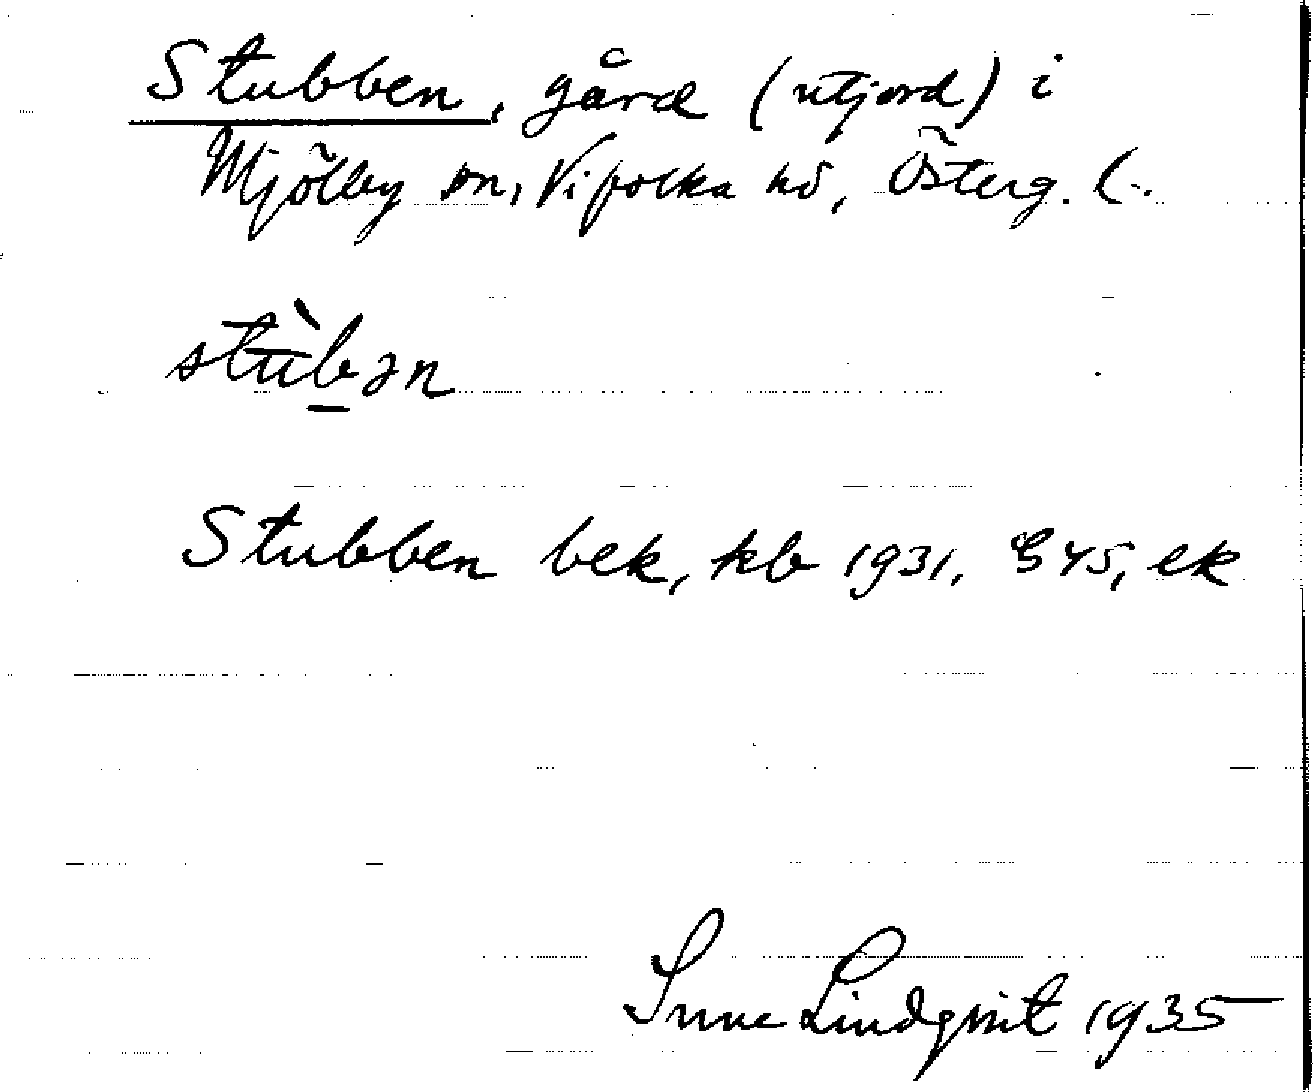 Stubben, gård (utjord) i
Mjölby sn, Vifolka hd, Österg. l.
stùbən
Stubben bek, kb 1931, E 45, ek
Sune Lindqvist 1935